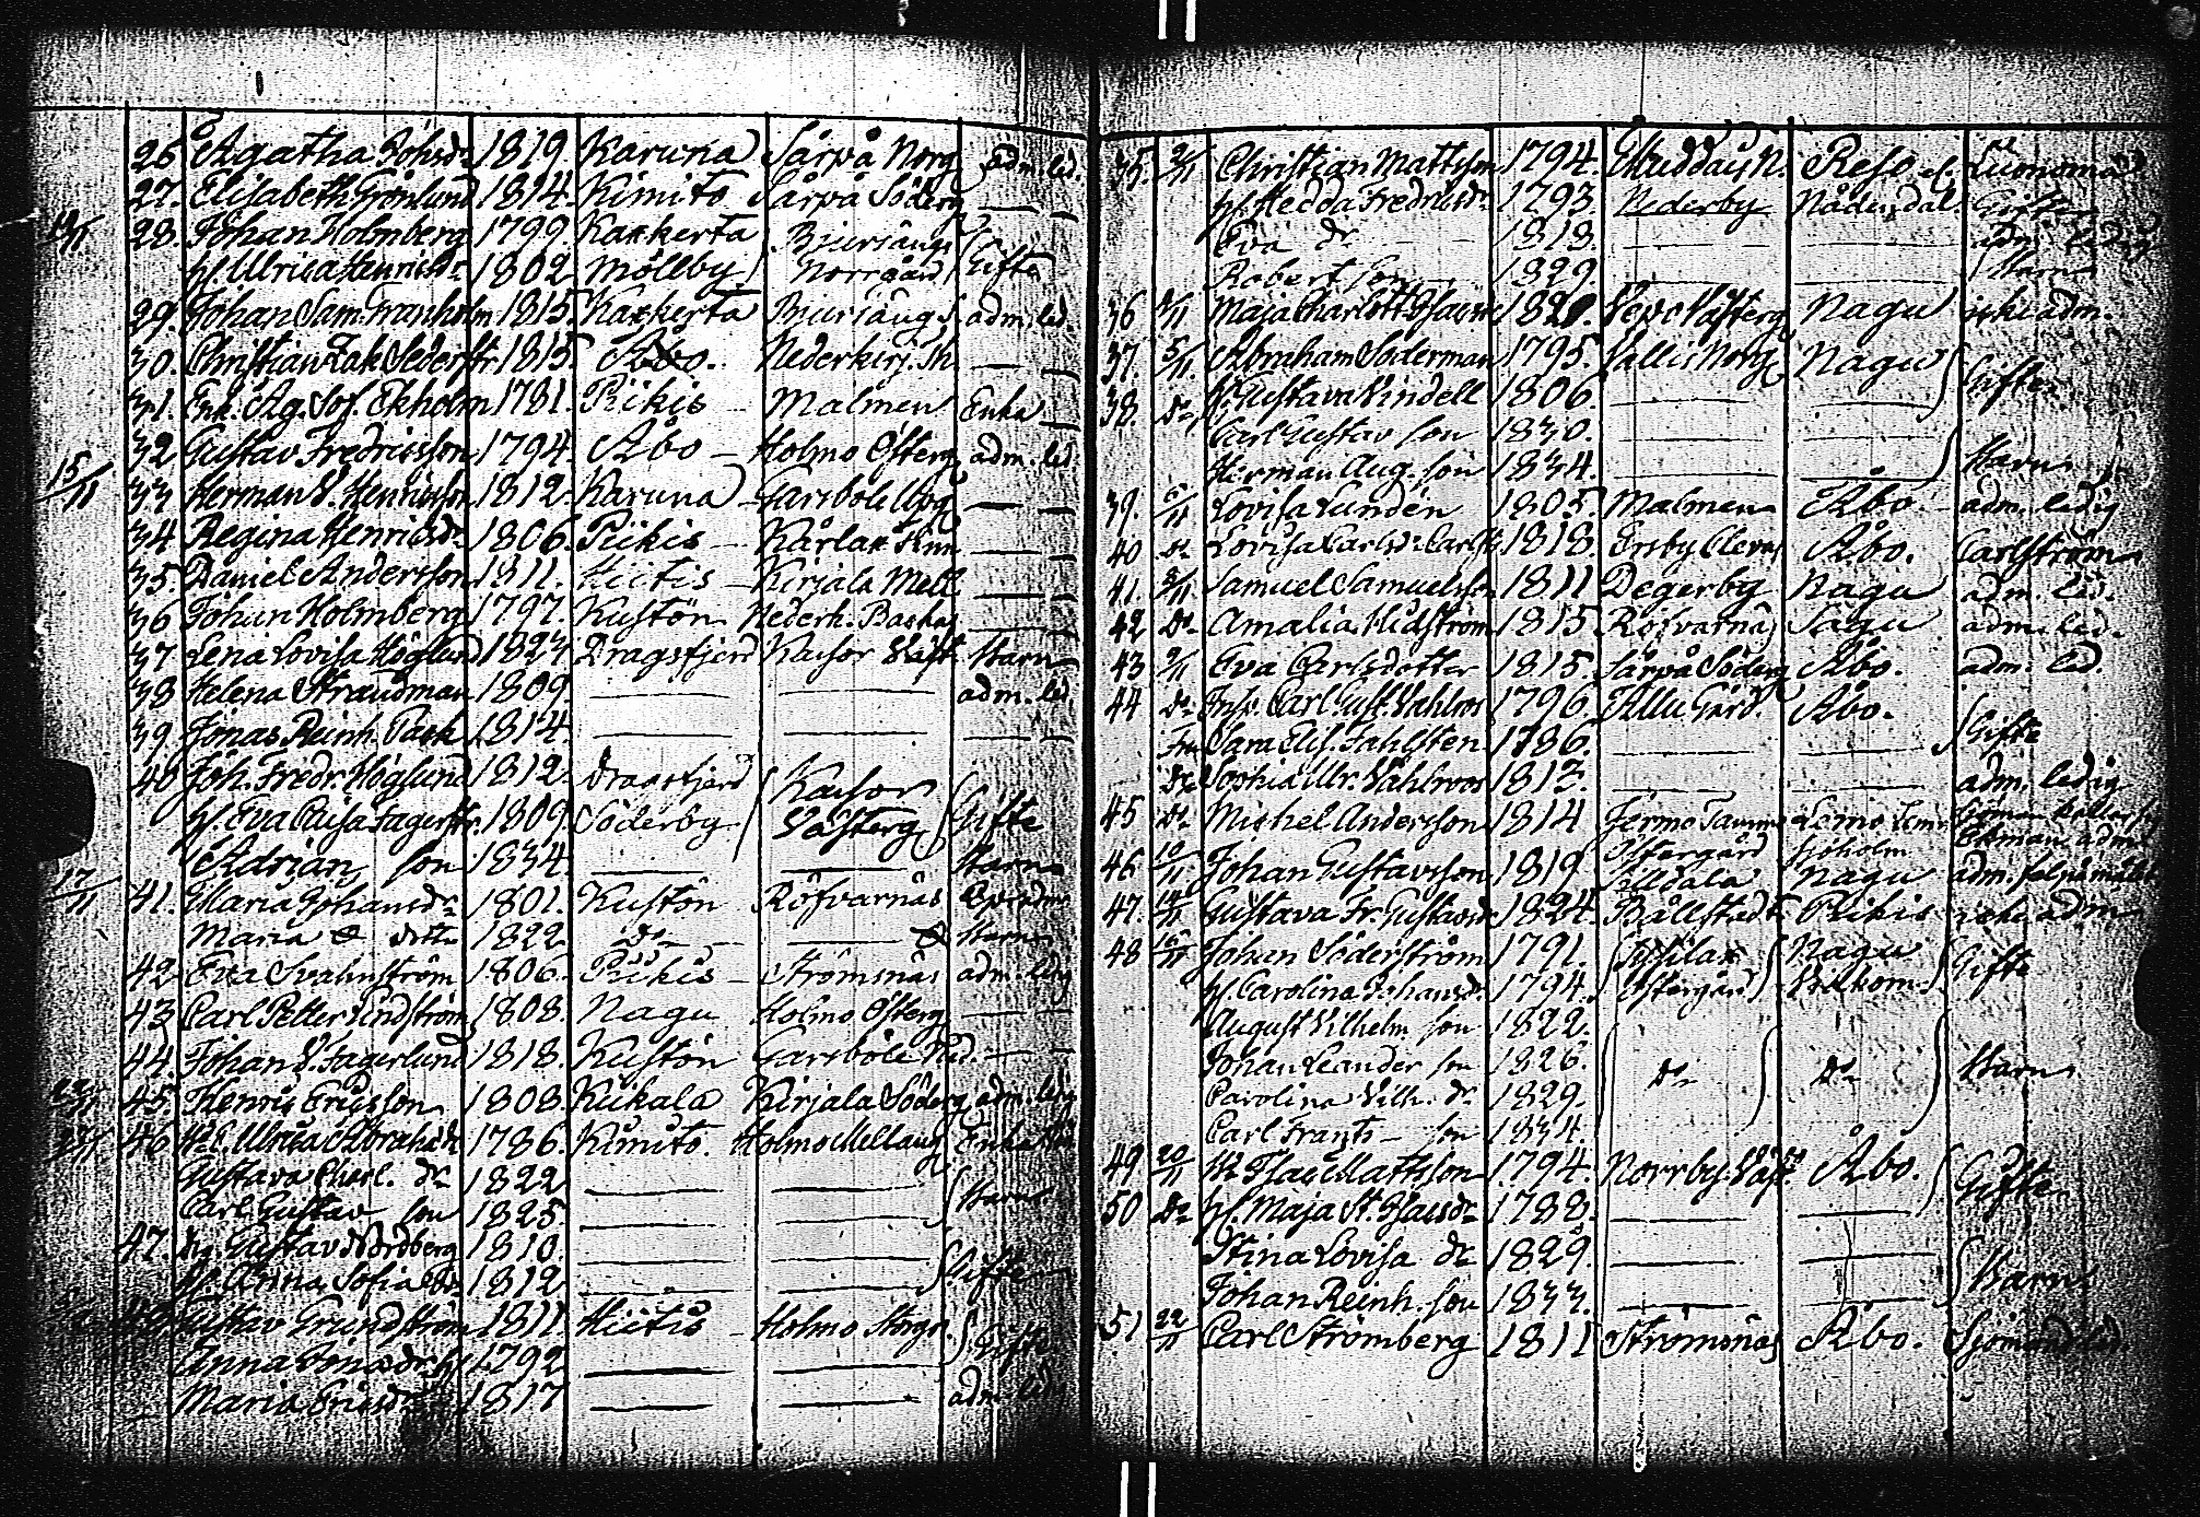 26. Agatha Johsdr 1819. Karuna Särpå Norg. adm. led.
27. Elisabeth Grönlund 1814. Kimito Särpå Söderg
28. Johan Holmberg 1799. Kaxkerta Bjursängs Gifte
h. Ulrica Henricsdr 1802 Möllby Norrgård
29. Johan Sam. Granholm 1815. Kaxkerta Bjursäng S. adm. led.
30. Christian Zak. Sederstr. 1815 Åbo. Nederkirj. Sk.
31. Enk. Ag. Sof. Ekholm 1781. Piikis Malmen Enka
32 Gustav Fredricsson 1794. Åbo Holmo Österg adm. led.
15/11 33 Herman V. Henricsson 1812. Karuna Garsböle Uppg
34 Regina Henricsdr 1806. Piikis Kårlax
35. Daniel Andersson 1811. Hiitis Kirjala Mell.
36 Johan Holmberg 1797. Kustön Nederk. Baskas
37 Lena Lovisa Höglund 1823. Dragsfjerd Kaisor Väst. Barn
38 Helena Strandman 1809. adm. led.
39 Jonas Reinh. Pask 1814
40 Joh. Fredr. Höglund 1812. Dragsfjerd Kaisor Gifte
h. Eva Caisa Fagerstr. 1809. Söderby Västerg
Adrian, son 1834. Barn
17/11 41. Maria Johansdr 1801. Kustön Röfvarnäs
Maria dotter 1822 do Barn
42 Eva Svahnström 1806. Piikis Strömsnäs adm. ledig
43 Carl Petter Lindström 1808. Nagu Holmo Österg
44. Johan V. Fagerlund 1818. Kustön Garsböle Ned.
45. Henric Ericsson 1808. Kiikala Kirjala Söderg adm. ledig
46 Ulrica Abrahamsdr 1786. Kimito. Holmo Mellang Enka
Gustava Charl. dr 1822 Barn
Carl Gustav son 1825
47. Gustav Nordberg 1810. Gifte
h. Anna Sofia 1812
48. Gustav Grundström 1811. Hiitis Holmo Storg. Gifte
Anna Jonasdr h. 1792
Maria Ericsdr 1817 adm. led.
35. 2/11 Christian Mattsson 1794. Muddais N. Reso
h. Hedda Fredricsdr 1793 Nederby Nådendal. Gifte
Eva dr 1818. adm. ledig
Robert son 1829. Barn
36 Maja Charlott. Isacsdr Vepo Västerg Nagu icke adm.
37. 5/11 Abraham Söderman 1795. Vallis Norrg Nagu Gifte
38. do h. Gustava Lindell 1806.
Carl Gustav son 1830. Barn
Herman Aug. son 1834.
39. Lovisa Lundén 1805. Malmen Åbo. adm. ledig
40 do Lovisa Carlsdr 1818. Ersby Åbo. Carlström
41. 8/11 Samuel Samuelsson 1811 Degerby Nagu adm. led.
42 do Amalia Widström 1815. Röfvarnäs Sagu adm. led.
43 9/11 Eva Carlsdotter 1815. Särpå Söderg Åbo. adm. led.
44 do Carl Gust. Vahlroos 1796. Attu Gård. Åbo. Gifte
Fru Sara Elis. Fahlsten 1786.
Sophia Ulr. Vahlroos 1813. adm. ledig
45 do Michel Andersson 1814 Jermo Lemo kallar sig
46 10/11 Johan Gustavsson 1819. Östergård Sjöholm Ekman adm.
Silldala Nagu adm.
47. 14/11 Gustava Fr. Gustavsdr 1824. Bällstedt Piikis icke adm.
48 Johan Söderström 1791. Nagu Gifte
h. Carolina Johansdr 1794. Östergård
August Vilhelm son 1822.
Johan Leander son 1826. do do Barn
Carolina Vilh. dr 1829.
Carl Frants son 1834.
49 20/11 Isac Mattsson 1794. Norrby Väst. Åbo. Gifte
50 do h. Maja St. Isacsdr 1788.
Stina Lovisa dr 1829. Barn
Johan Reinh. son 1833.
51 22/11 Carl Strömberg 1811 Strömsnäs Åbo. Sjöman